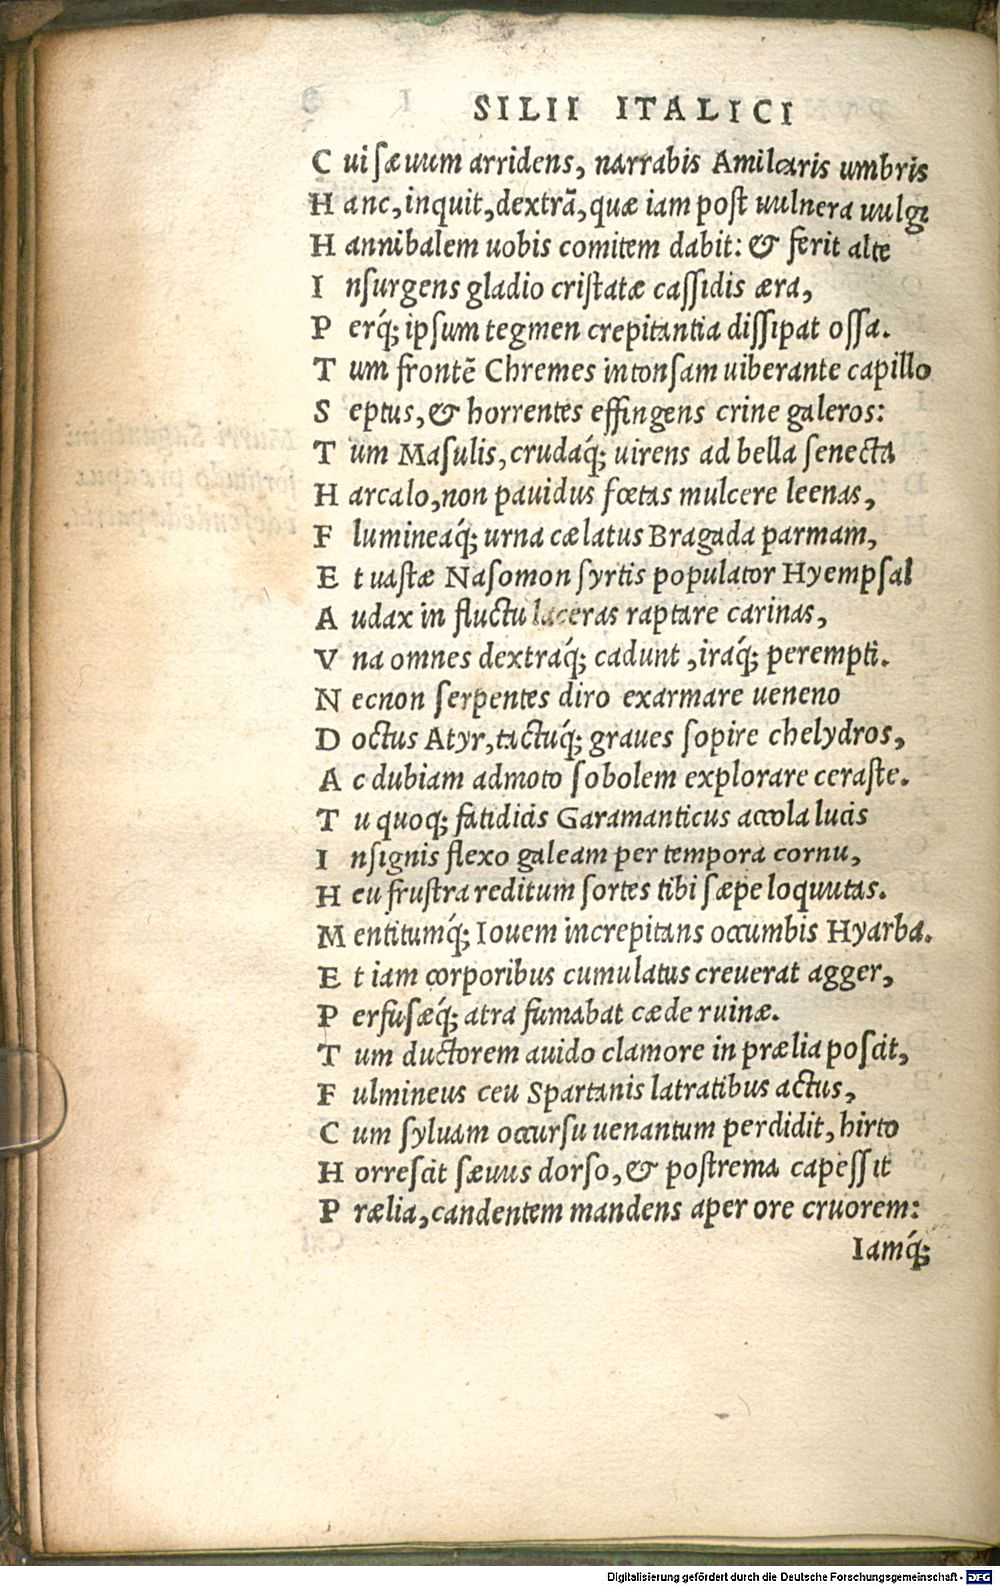 SILII ITALICI
C ui sæuum arridens, narrabis Amilcaris umbris
H anc, inquit, dextrā, quæ iam post uulnera uulgi
H annibalem uobis comitem dabit: & ferit alte
I nsurgens gladio cristatæ cassidis æra,
P erq́; ipsum tegmen crepitantia dissipat ossa.
T um frontē Chremes intonsam uiberante capillo
S eptus, & horrentes effingens crine galeros:
T um Masulis, crudaq́; uirens ad bella senecta
H arcalo, non pauidus fœtas mulcere leenas,
F lumineaq́; urna cælatus Bragada parmam,
E t uastæ Nasomon syrtis populator Hyempsal
A udax in fluctu laceras raptare carinas,
V na omnes dextraq́; cadunt, iraq́; perempti.
N ecnon serpentes diro exarmare ueneno
D octus Atyr, tactuq́; graues sopire chelydros,
A c dubiam admoto sobolem explorare ceraste.
T u quoq; fatidicis Garamanticus accola lucis
I nsignis flexo galeam per tempora cornu,
H eu frustra reditum sortes tibi sæpe loquutas.
M entitumq́; Iouem increpitans occumbis Hyarba.
E t iam corporibus cumulatus creuerat agger,
P erfusæq́; atra fumabat cæde ruinæ.
T um ductorem auido clamore in prælia poscit,
F ulmineus ceu Spartanis latratibus actus,
C um syluam occursu uenantum perdidit, hirto
H orrescit sæuus dorso, & postrema capessit
P rælia, candentem mandens aper ore cruorem:
Iamq́;
Digitalisierung gefördert durch die Deutsche Forschungsgemeinschaft - DFG